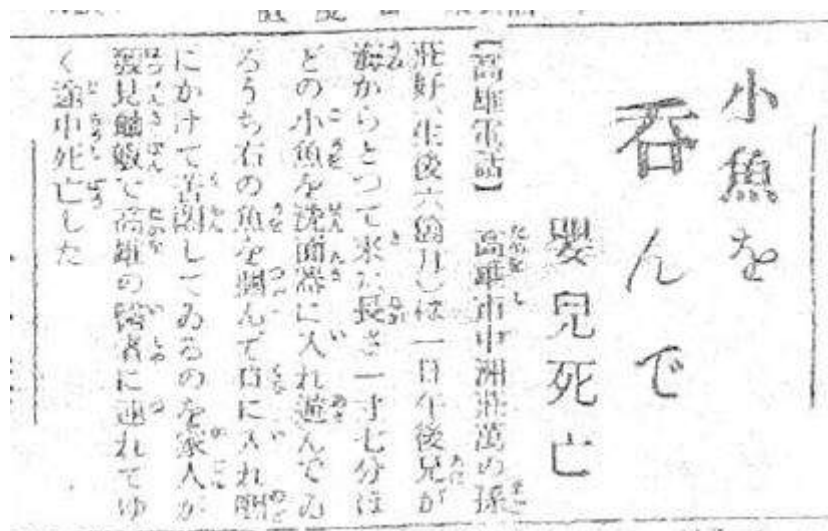 小魚を
呑んで
嬰兒死亡
【高雄電話】 高雄市中洲莊萬の孫
莊好(生後六箇月)は一日午後兄が
海からとつて來た長さ一寸七分ほ
どの小魚を洗面器に入れ遊んでゐ
るうち右の魚を掴んで口に入れ咽
にかけて苦悶してゐるのを家人が
發見舢舨で高雄の醫者に連れてゆ
く途中死亡した